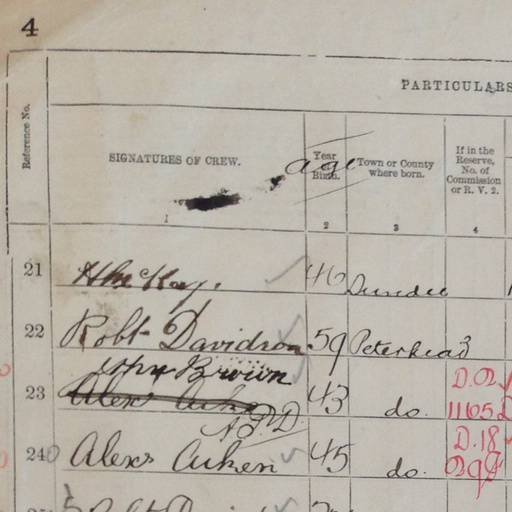 4
PARTICULARS
Reference No.
SIGNATURES OF CREW.
Year Birth. age
Town or County where born.
If in the Reserve, No. of Commission or R. V. 2.
1 2 3 4
21 H McKay. 46 Dundee
22 Robt Davidson 59 Peterhead
John Brown
23 Alexr Aiken 43 do. D.02
1165
24 Alexr Aiken 45 do. D.18